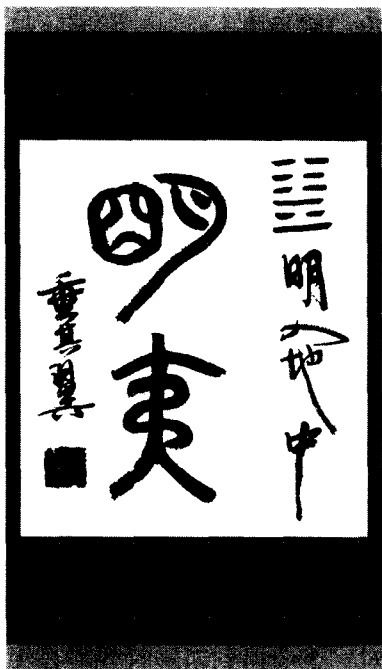 明入地中
明夷
垂其翼